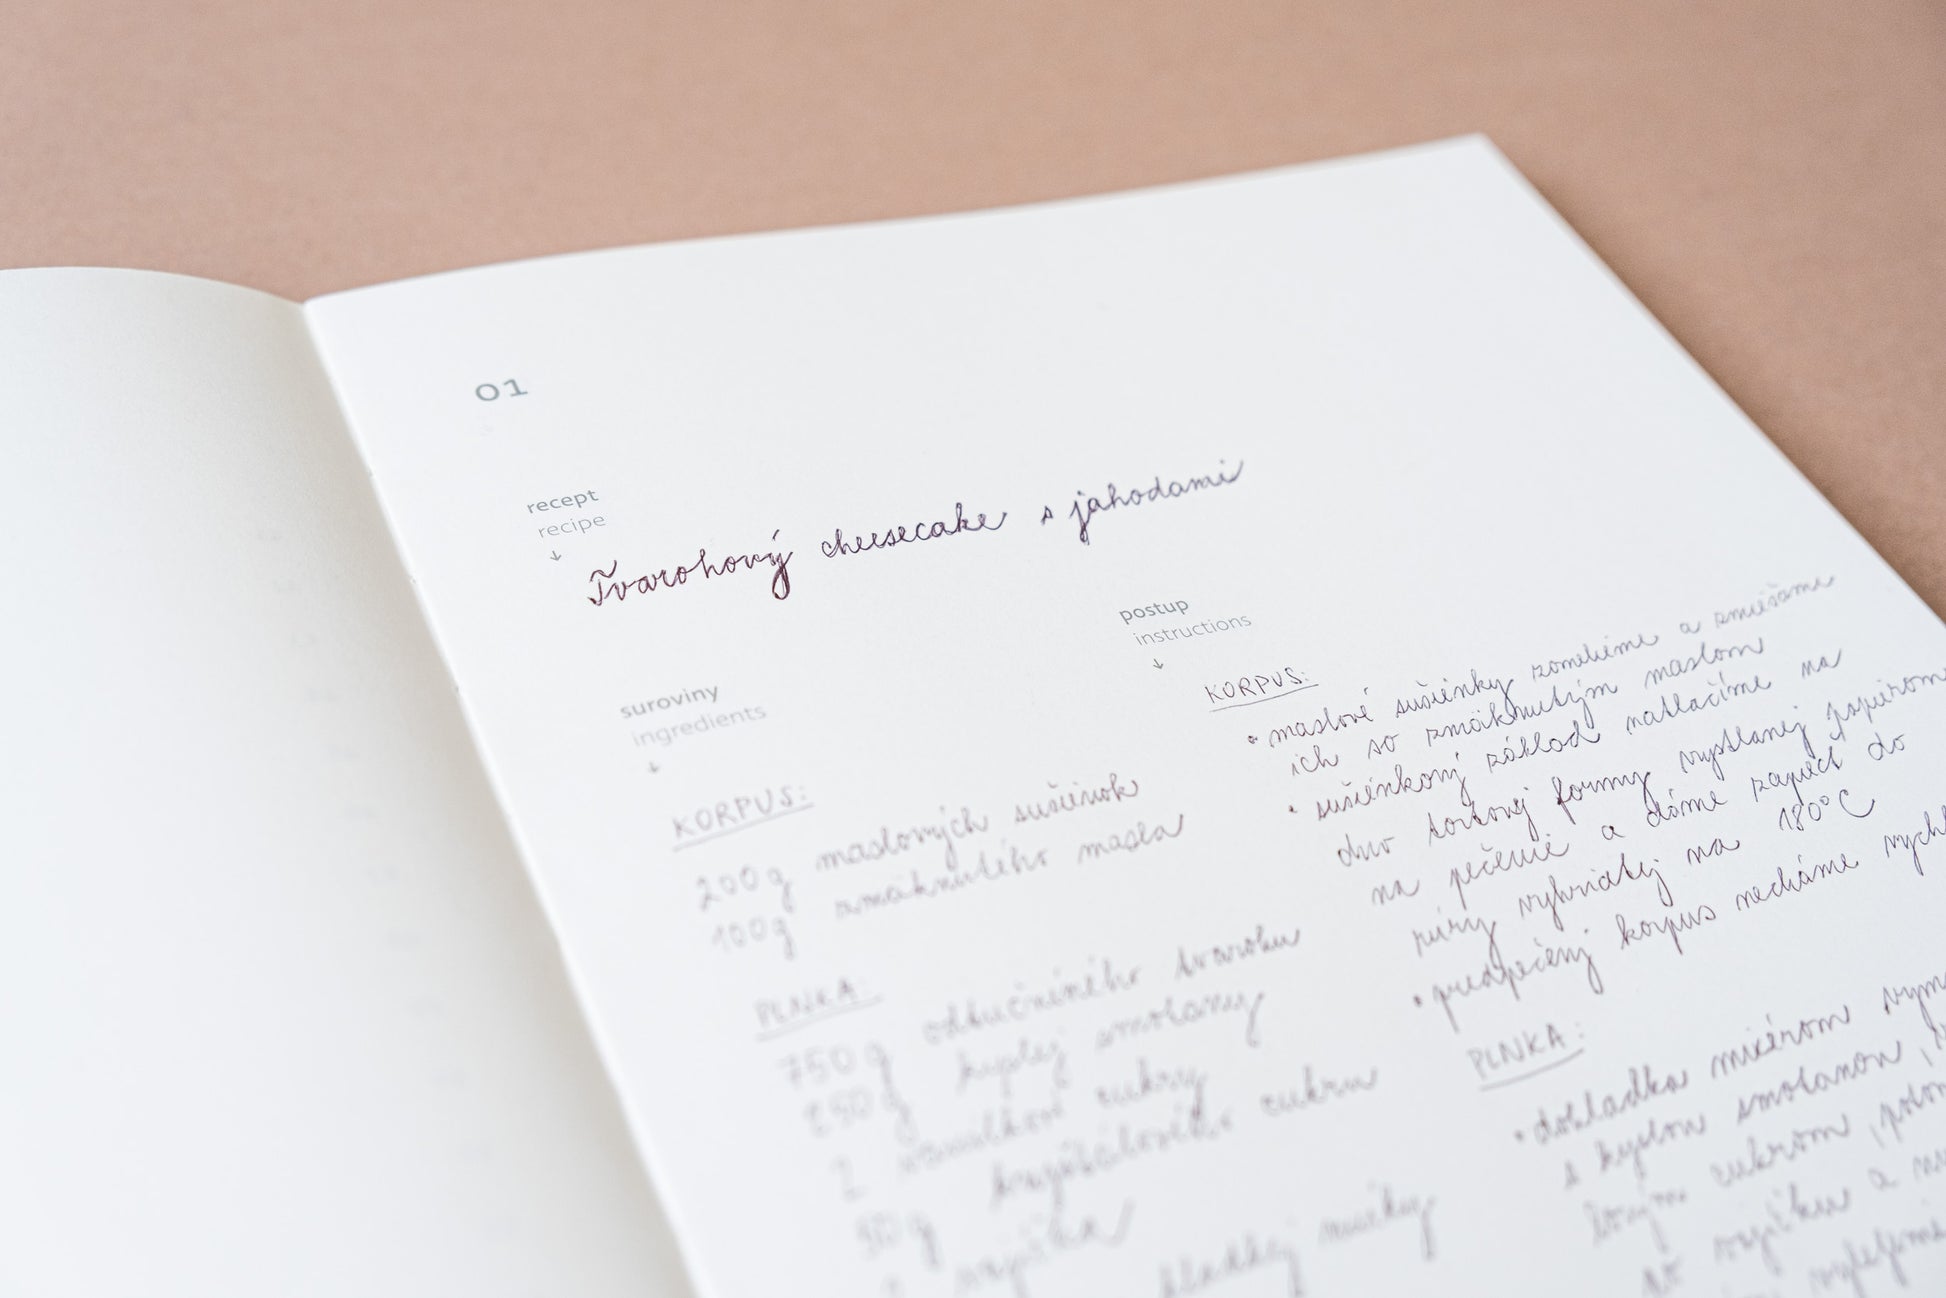 01
recept
recipe
↓
Tvarohový cheesecake s jahodami
suroviny
ingredients
↓
KORPUS:
200g maslových sušienok
100g zmäknutého masla
PLNKA:
750 g odtučneného tvarohu
250 g kyslej smotany
2 vanilkové cukry
g kryštálového cukru
vajíčka
hladkej múky
postup
instructions
↓
KORPUS:
• maslové sušienky zomelieme a zmiešame
ich so zmäknutým maslom
• sušienkový základ natlačíme na
dno tortovej formy vystlanej papierom
na pečenie a dáme zapiecť do
rúry vyhriatej na 180°C
• predpečený korpus necháme vychl
PLNKA:
• dohladka mixérom vym
s kyslou smotanou,
lovým cukrom, poton
vajíčku a
vylejeme